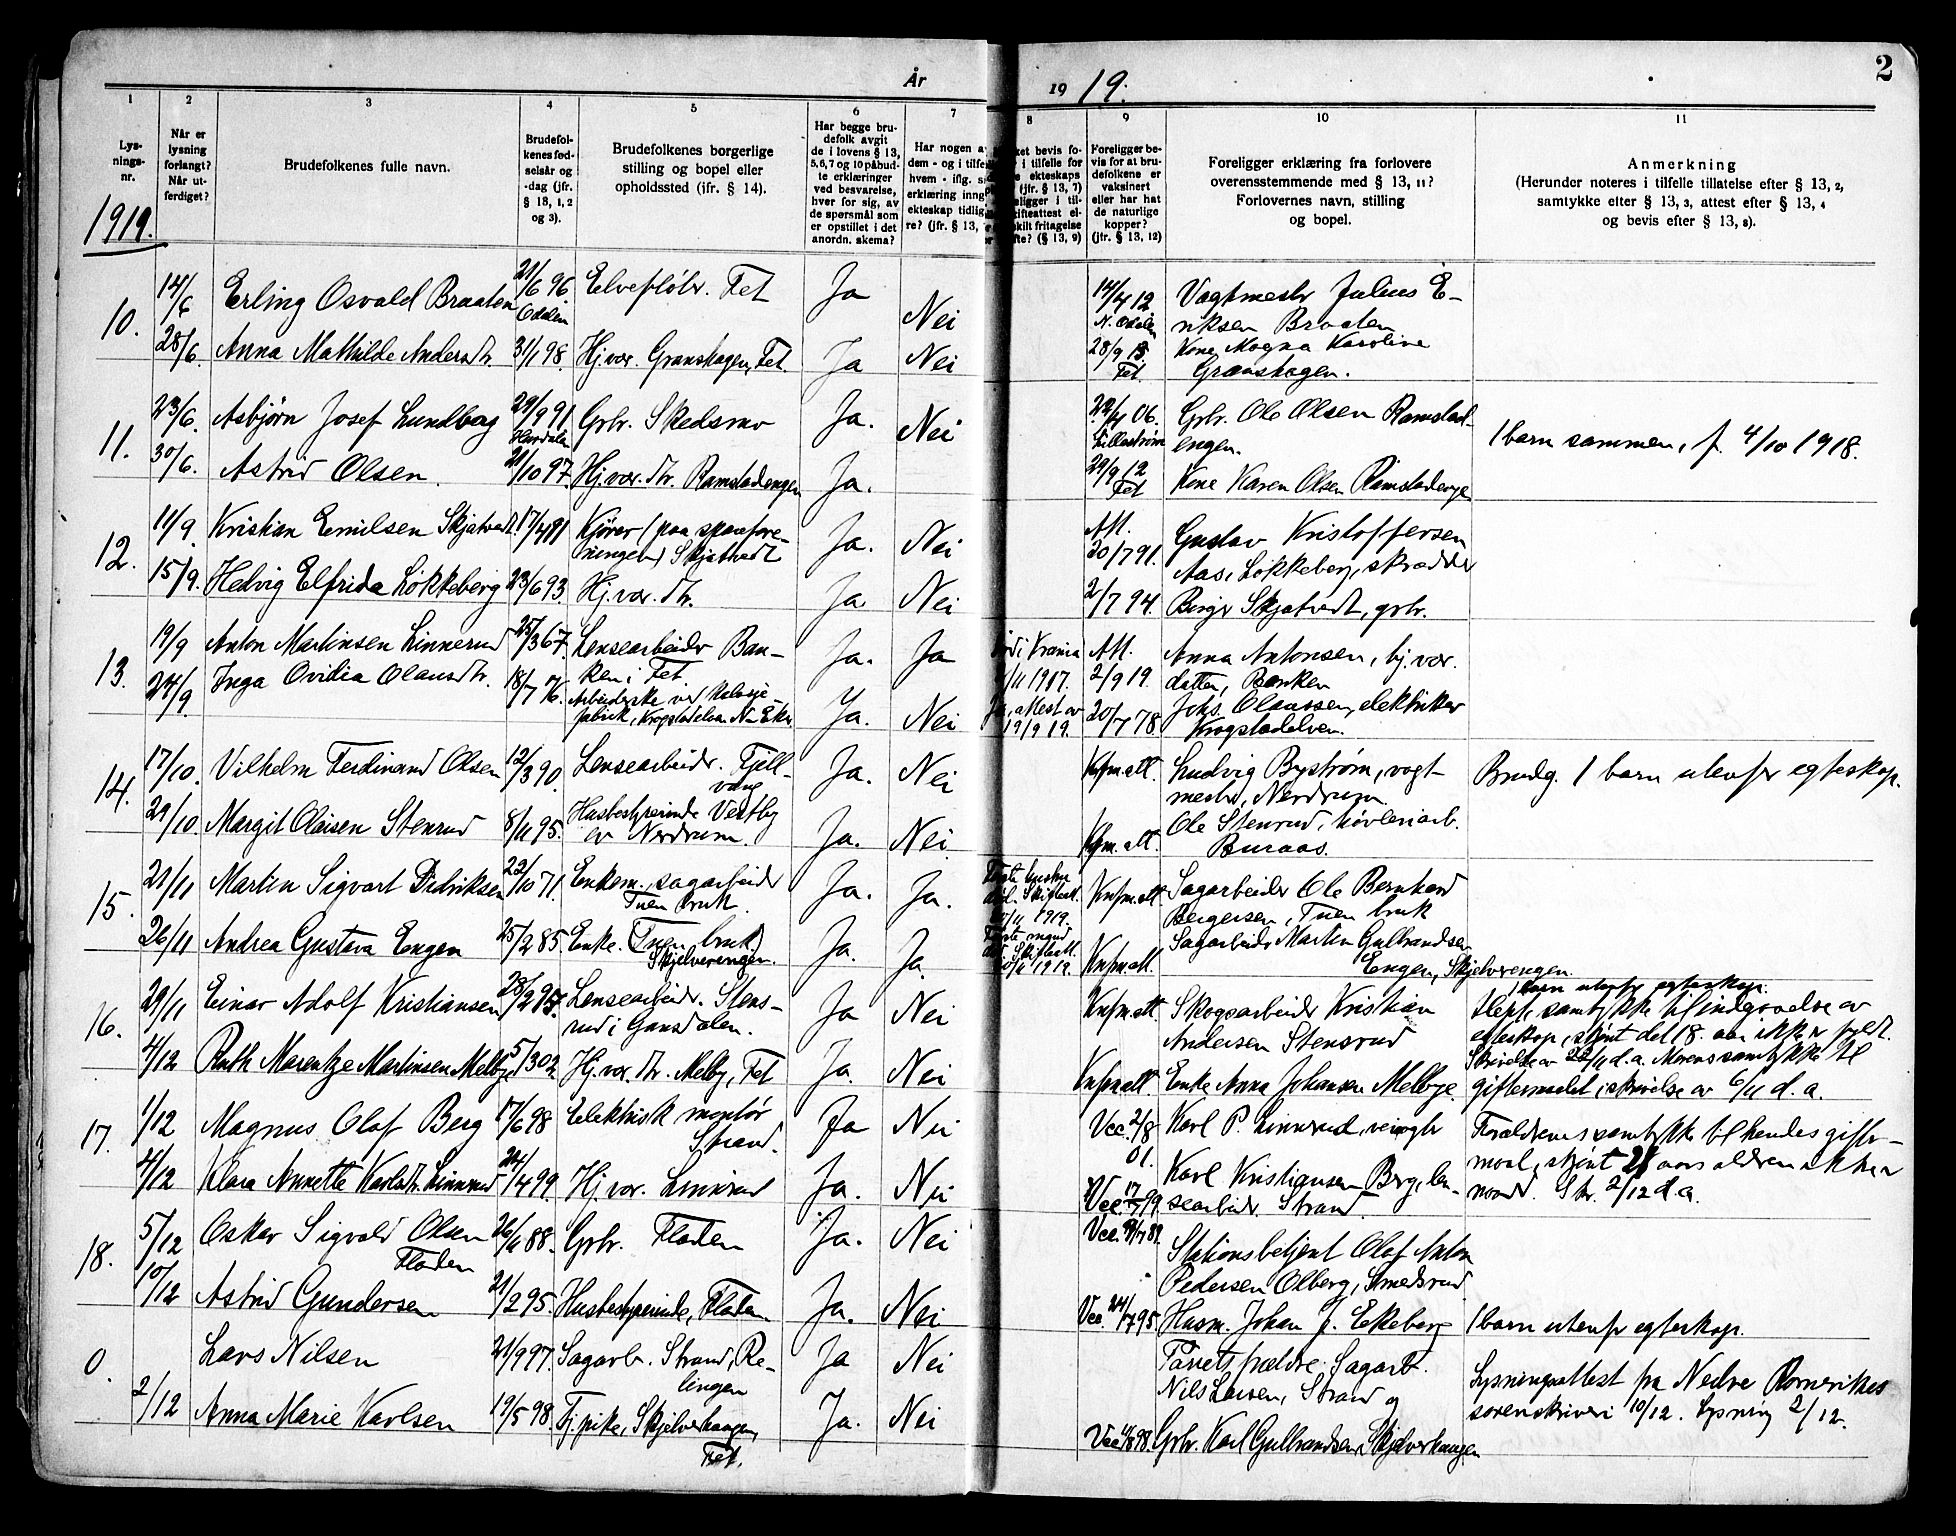 2
År
19 19.
1
2
3
4
5
6
7
8
9
10
11
Lys-
nings-
nr.
Når er
lysning
forlangt?
Når ut-
ferdiget?
Brudefolkenes fulle navn.
Brudefol-
kenes fød-
selsår og
-dag (jfr.
§ 18, 1, 2
og 3).
Brudefolkenes borgerlige
stilling og bopel eller
opholdssted (jfr. § 14).
Har begge bru-
defolk avgit
de i lovens § 13,
5, 6, 7 og 10 påbud-
te erklæringer
ved besvarelse,
hver for sig, av
de spørsmål som
er opstillet i det
anordn. skema?
Har nogen a
dem - og i tilfe
hvem - iflg. s
erklæring inng
ekteskap tidlig
re? (jfr. § 13,
ket bevis fo-
i tilfelle for
ekteskaps
(jfr. § 13, 7)
eligger i til-
kifteattest el-
skilt fritagelse
fte? (§ 13, 9)
Foreligger be-
vis for at bru-
defolkene er
vaksinert
eller har hat
de naturlige
kopper?
(jfr. § 13, 12)
Foreligger erklæring fra forlovere
overensstemmende med § 13, 11?
Forlovernes navn, stilling
og bopel.
Anmerkning
(Herunder noteres i tilfelle tillatelse efter § 13, 2,
samtykke efter § 13, 3, attest efter § 13, 4
og bevis efter § 13, 8).
1919.
10. 14/6 Erling Osvald Braaten 21/6 96. Odalen Elvefløter. Fet Ja Nei 14/4 12 N. Odalen Vagtmestr Julius E-
riksen Braaten
28/6 Anna Mathilde Andersdtr. 31/1 98. Hj.vær. Granskogen, Fet. Ja Nei 28/9 13 Fet. Kone Magna Karoline
Granskogen.
11. 23/6. Asbjørn Josef Lundberg 29/9 91. Gbr. Skedsmo Ja. Nei 22/4 06. Lillestrøm Gbr. Ole Olsen Ramstad-
engen.
1 barn sammen, f. 4/10 1918.
30/6. Astrid Olsen. 21/10 97. Hj.vær. dtr. Ramstadengen Ja. 29/9 12 Fet Kone Karen Olsen Ramstadenge
12. 11/9. Kristian Emilsen Skjatvedt. 17/4 91 Kjører (paa sporefore-
ningen) Skjatvedt Ja. Nei Att. 20/7 91. Gustav Kristoffersen
Aas, Løkkeberg, skrædder
15/9. Hedvig Elfrida Løkkeberg 23/6 93. Hj.vær. dtr. Ja. Nei 2/7 94. Birger Skjatvedt, gbr.
13. 19/9 Anton Martinsen Linnerud 25/3 67. Lensearbeider Ban-
ken i Fet Ja. Ja 1917. Att. 2/9 19. Anna Antonsen, hj.vær.
datter, Banken
24/9. Inga Ovidia Olausdtr. 18/7 76. Arbeiderske ved
fabrik, Krogstadelven N. Eker Ja. Nei attest av
19/9 19. 20/7 78 Johs. Olaussen, elektriker
Krogstadelven.
14. 17/10. Vilhelm Ferdinand Olsen 12/3 90. Lensearbeider. Fjell-
vang Ja. Nei Knfm.att. Ludvig Bystrøm, vagt-
mester, Nerdrum.
Brudg. 1 barn utenfor egteskap.
29/10. Margit Olaisen Stenrud 8/11 95. Husbestyrerinde Vestby
av Nerdrum. Ja. Nei. Knfm.att. Ole Stenrud, høvleriarb.
Buraas.
15. 21/11 Martin Sigvart Didriksen 22/10 71. Enkem., sagarbeider
Tuen bruk. Ja. Ja. Første hustru
død. Skifteatt.
11 1919. Knfm.att. Sagarbeider Ole Bernhard
Bergersen, Tuen bruk
26/11 Andrea Gustava Engen 25/2 85. Enke. (Tuen bruk)
Skjelverengen. Ja. Ja. Første mand
død Skifteatt.
1919. Knfm.att. Sagarbeider Martin Gulbrandsen
Engen, Skjelverengen.
16. 29/11 Einar Adolf Kristiansen 28/2 95. Lensearbeider. Stens-
rud i Gansdalen. Ja Nei Knfm.att. Skogsarbeider Kristian
Andersen Stensrud
1 barn utenfor egteskap.
samtykke til indgaaelse av
egteskap, skjønt det 18. aar ikke er fyldt.
Skrivelse av 22/11 d.a. Morens samtykke til
giftermaalet i skrivelse av 6/11 d.a.
4/12 Ruth Marentze Martinsen Melby 5/3 02. Hj.vær. dtr. Melby, Fet Ja. Nei Knfm.att. Enke Anna Johansen Melbye.
17. 1/12 Magnus Olaf Berg 17/6 98 Elektrisk montør
Strand. Ja Nei Vcc. 2/8
01. Karl P. Linnerud, veivogter
Forældrenes samtykke til hendes gifter-
maal, skjønt 21 aars alderen ikke er
naadd. Skr. 2/12 d.a.
4/12 Klara Annette Karlsdtr. Linnerud 24/4 99. Hj.vær. Linnerud Ja. Nei Vcc. 17/7 99. Karl Kristiansen Berg, len-
searbeider. Strand.
18. 5/12 Oskar Sigvald Olsen
Floden 26/11 88. Gbr. Floden Ja. Nei Vcc. 89. Stationsbetjent Olaf Anton
Pedersen Olberg, Smedsrud.
10/12 Astrid Gundersen 21/2 95. Husbestyrerinde, Floden. Ja. Nei Vcc. 24/7 95. Husm. Johan J. Ekeberg 1 barn utenfor egteskap.
0. Lars Nilsen 21/9 97. Sagarb. Strand, Re-
lingen Ja Nei Sagarb.
Nils Larsen, Strand og
Lysningsattest fra Nedre Romerikes
sorenskriveri 10/12. Lysning 2/12.
2/12 Anna Marie Karlsen 19/5 98. Tj.pike, Skjelverhaugen,
Fet. Ja. Nei Vcc. 98. Gbr. Karl Gulbrandsen, Skjelverhaugen